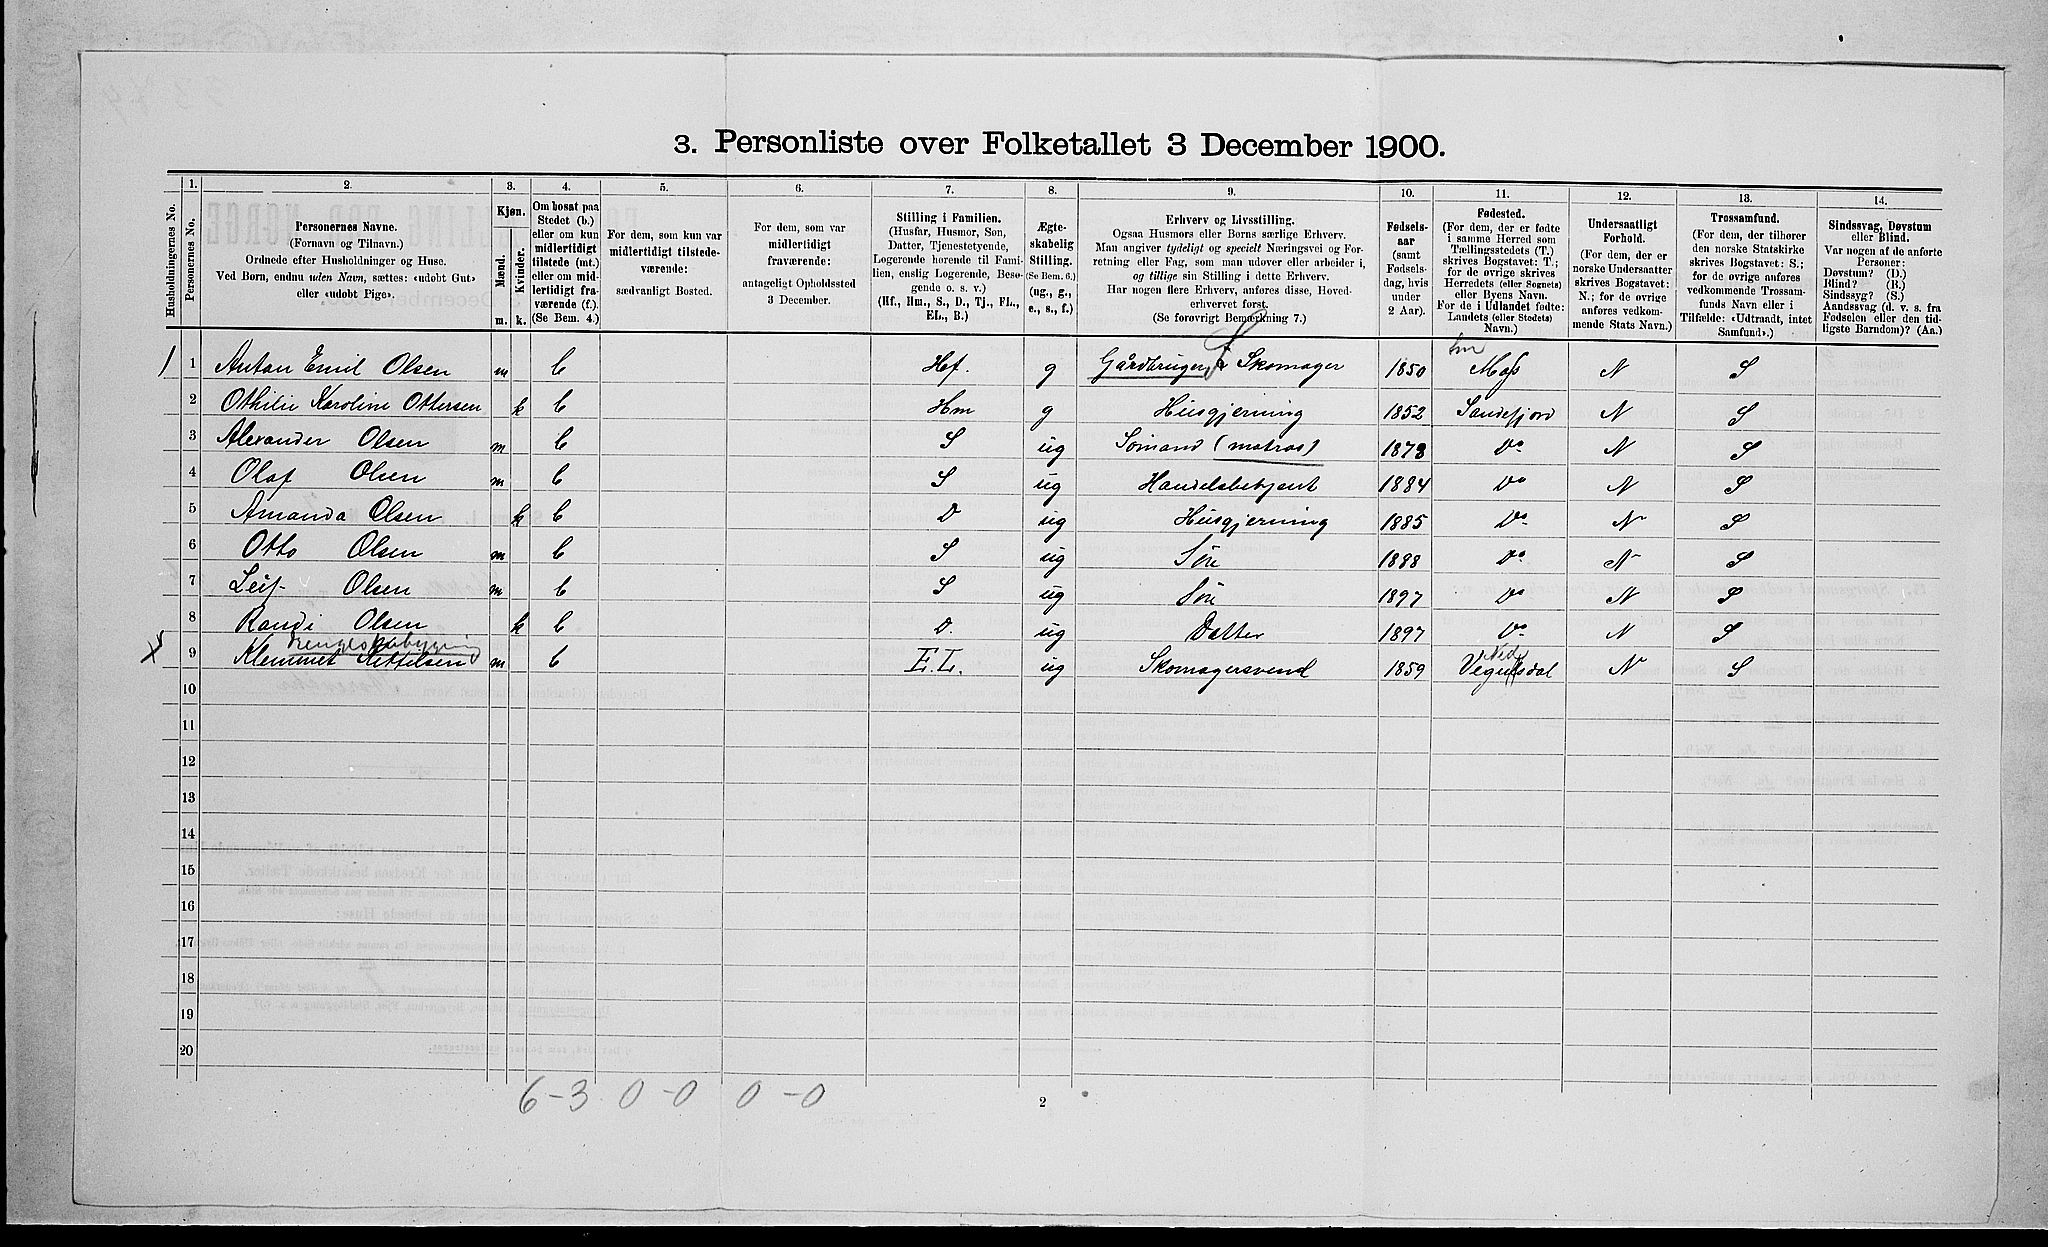 3. Personliste over Folketallet 3 December 1900.
Husholdningernes No.
1. Personernes No.
2. Personernes Navne.
(Fornavn og Tilnavn.)
Ordnede efter Husholdninger og Huse.
Ved Børn, endnu uden Navn, sættes: «udøbt Gut»
eller «udøbt Pige».
3. Kjøn.
Mænd. m.
Kvinder. k.
4. Om bosat paa
Stedet (b.)
eller om kun
midlertidigt
tilstede (mt.)
eller om mid-
lertidigt fra-
værende (f.).
(Se Bem. 4.)
5. For dem, som kun var
midlertidigt tilstede-
værende:
sædvanligt Bosted.
6. For dem, som var
midlertidigt
fraværende:
antageligt Opholdssted
3 December.
7. Stilling i Familien.
(Husfar, Husmor, Søn,
Datter, Tjenestetyende,
Logerende hørende til Fami-
lien, enslig Logerende, Besø-
gende o. s. v.)
(Hf., Hm., S., D., Tj., FL.,
EL., B.)
8. Ægte-
skabelig
Stilling.
(Se Bem. 6.)
(ug., g.,
e., s., f.)
9. Erhverv og Livsstilling.
Ogsaa Husmors eller Børns særlige Erhverv.
Man angiver tydeligt og specielt Næringsvei og For-
retning eller Fag, som man udøver eller arbeider i,
og tillige sin Stilling i dette Erhverv.
Har nogen flere Erhverv, anføres disse, Hoved-
erhvervet først.
(Se forøvrigt Bemærkning 7.)
10. Fødsels-
aar
(samt
Fødsels-
dag, hvis
under
2 Aar).
11. Fødested.
(For dem, der er fødte
i samme Herred som
Tællingsstedets (T.)
skrives Bogstavet: T.;
for de øvrige skrives
Herredets (eller Sognets)
eller Byens Navn.
For de i Udlandet fødte:
Landets (eller Stedets)
Navn.)
12. Undersaatligt
Forhold.
(For dem, der er
norske Undersaatter
skrives Bogstavet:
N.; for de øvrige
anføres vedkom-
mende Stats Navn.)
13. Trossamfund.
(For dem, der tilhører
den norske Statskirke
skrives Bogstavet: S.;
for de øvrige anføres
vedkommende Trossam-
funds Navn eller i
Tilfælde: «Udtraadt, intet
Samfund».)
14. Sindssvag, Døvstum
eller Blind.
Var nogen af de anførte
Personer:
Døvstum? (D.)
Blind? (B.)
Sindssyg? (S.)
Aandssvag (d. v. s. fra
Fødselen eller den tid-
ligste Barndom)? (Aa.)
1 1 Anton Emil Olsen m b Hf. g Gårdbruger, Skomager 1850 Moss N S
2 Othilie Karoline Ottersen k b Hm g Husgjerning 1852 Sandefjord N S
3 Alexander Olsen m b S ug Sømand (matros) 1878 Do N S
4 Olaf Olsen m b S ug Handelsbetjent 1884 Do N S
5 Amanda Olsen k b D ug Husgjerning 1885 Do N S
6 Otto Olsen m b S ug Søn 1888 Do N S
7 Leif Olsen m b S ug Søn 1897 Do N S
8 Randi Olsen k b D. ug Datter 1897 Do N S
9 Klemmet Kittelsen m b E.L. ug Skomagersvend 1859 Vegusdal N S
10
11
12
13
14
15
16
17
18
19
20
6-3 0-0 0-0
2